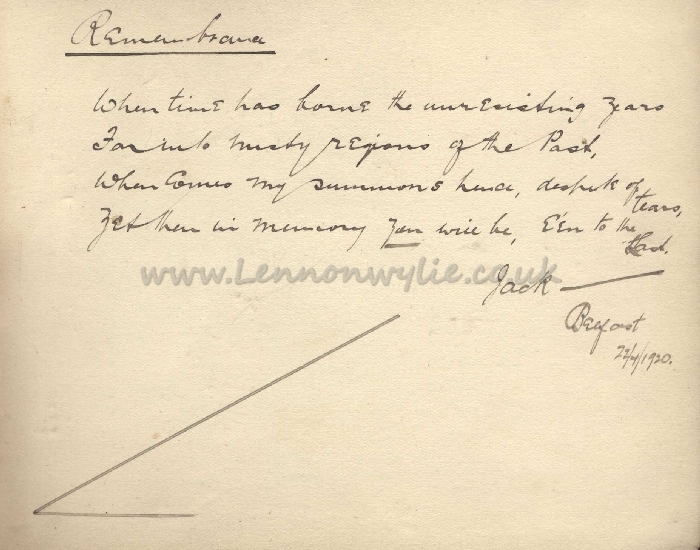 Remembrance
When time has borne the unresisting years
Far into misty regions of the Past,
When comes my summons hence, despite of tears,
Yet then in memory you will be, E'en to the last.
www.Lennonwylie.co.uk
Jack
Belfast
22/4/1920.